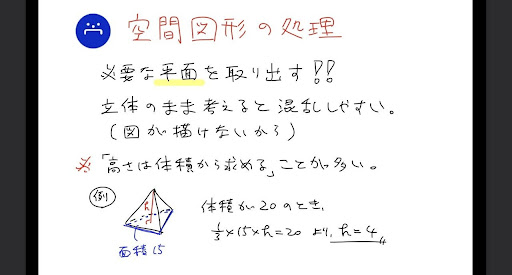 空間図形の処理
必要な平面を取り出す!!
立体のまま考えると混乱しやすい。
(図が描けないから)
※「高さは体積から求める」ことが多い。
例
h
面積15
体積が20のとき、
1/3×15×h=20 より、h=4